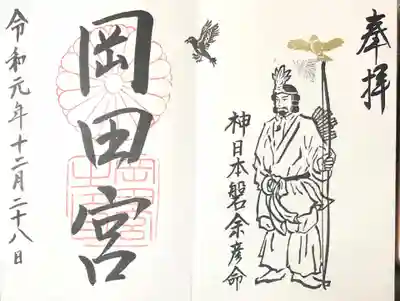 奉拝
神日本磐余彦命
岡田宮
令和元年十二月二十八日